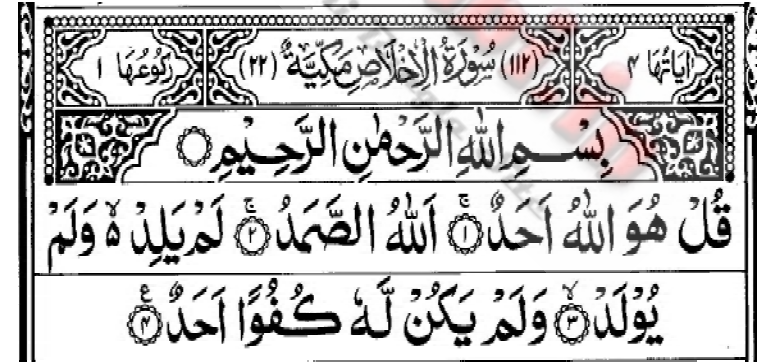 اٰیَاتُهَا ۴ (۱۱۲) سُوْرَةُ الْاِخْلَاصِ مَكِّیَّةٌ (۲۲) رُكُوْعُهَا ۱
بِسْمِ اللّٰهِ الرَّحْمٰنِ الرَّحِیْمِ
قُلْ هُوَ اللّٰهُ اَحَدٌۚ ۱ اَللّٰهُ الصَّمَدُۚ ۲ لَمْ یَلِدْ ۙ۬ وَلَمْ
یُوْلَدْۙ ۳ وَلَمْ یَكُنْ لَّهٗ كُفُوًا اَحَدٌ ۴ ع